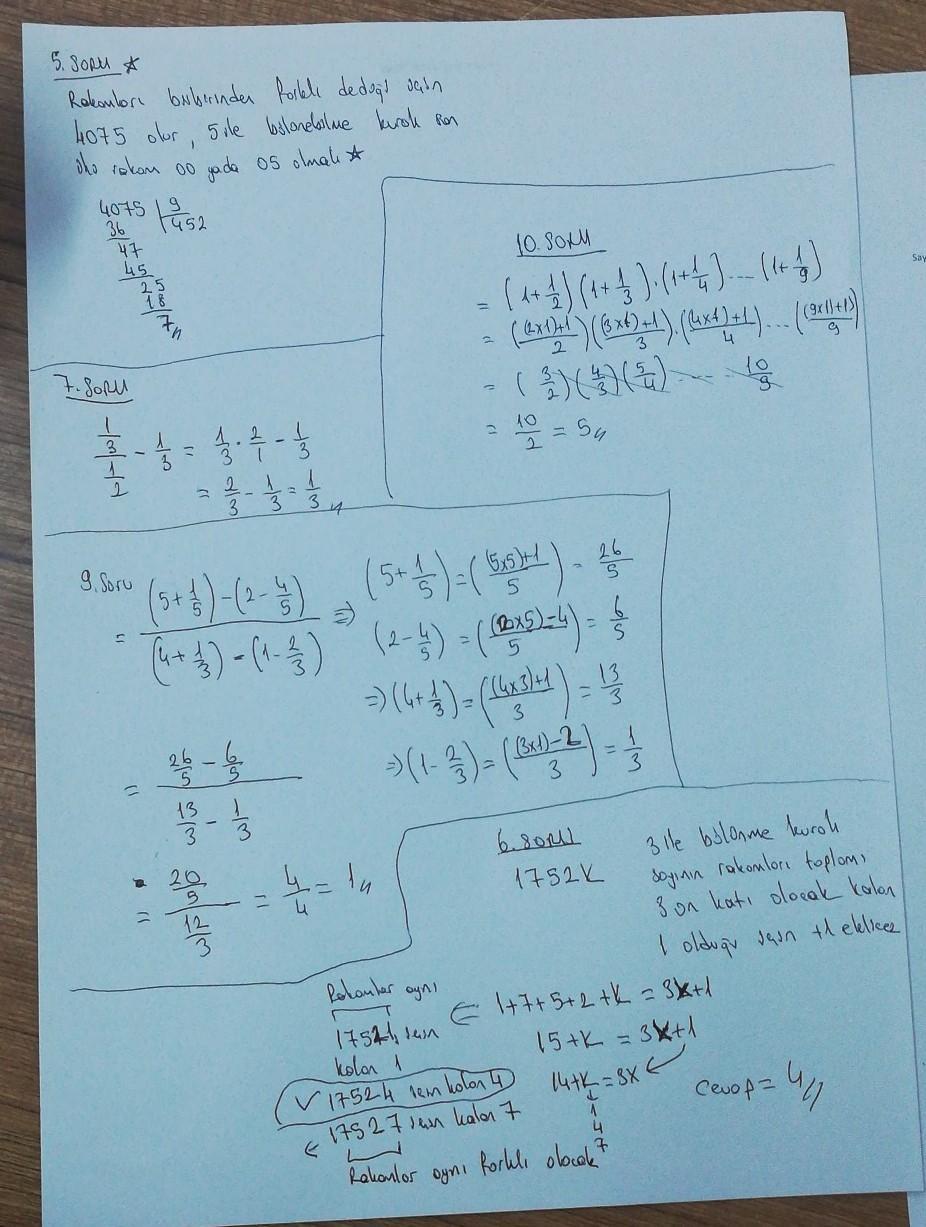 5. SORU ★
Rakamları birbirinden farklı dediği için
4075 olur, 5 ile bölünebilme kuralı son
iki rakam 00 yada 05 olmalı ★
4075 | 9
36 452
47
45
25
18
7//
10. SORU
= (1+1/2)(1+1/3).(1+1/4)....(1+1/9)
= ((2x1)+1/2)((3x1)+1/3).((4x1)+1/4)...((9x1)+1)/9)
= (3/2)(4/3)(5/4) ... 10/9
= 10/2 = 5//
7. SORU
1/3 / 1/2 - 1/3 = 1/3 . 2/1 - 1/3
= 2/3 - 1/3 = 1/3 //
9. Soru
= (5+1/5)-(2-4/5) / (4+1/3)-(1-2/3) ⇒
(5+1/5)=((5x5)+1/5) = 26/5
(2-4/5) = ((2x5)-4/5) = 6/5
⇒(4+1/3)=((4x3)+1/3) = 13/3
⇒(1-2/3)=((3x1)-2/3) = 1/3
= 26/5 - 6/5 / 13/3 - 1/3
= 20/5 / 12/3 = 4/4 = 1//
6. SORU
1752K
3 ile bölünme kuralı
sayının rakamları toplamı
3 ün katı olacak kalan
1 olduğu için +1 eklicez
1+7+5+2+K = 3K+1
15+K = 3K+1
14+K=3X
1
4
7
Rakamlar aynı
17521 için
kalan 1
✓ 17524 için kalan 4
∈ 17527 için kalan 7
Rakamlar aynı farklı olacak
cevap = 4//
Say